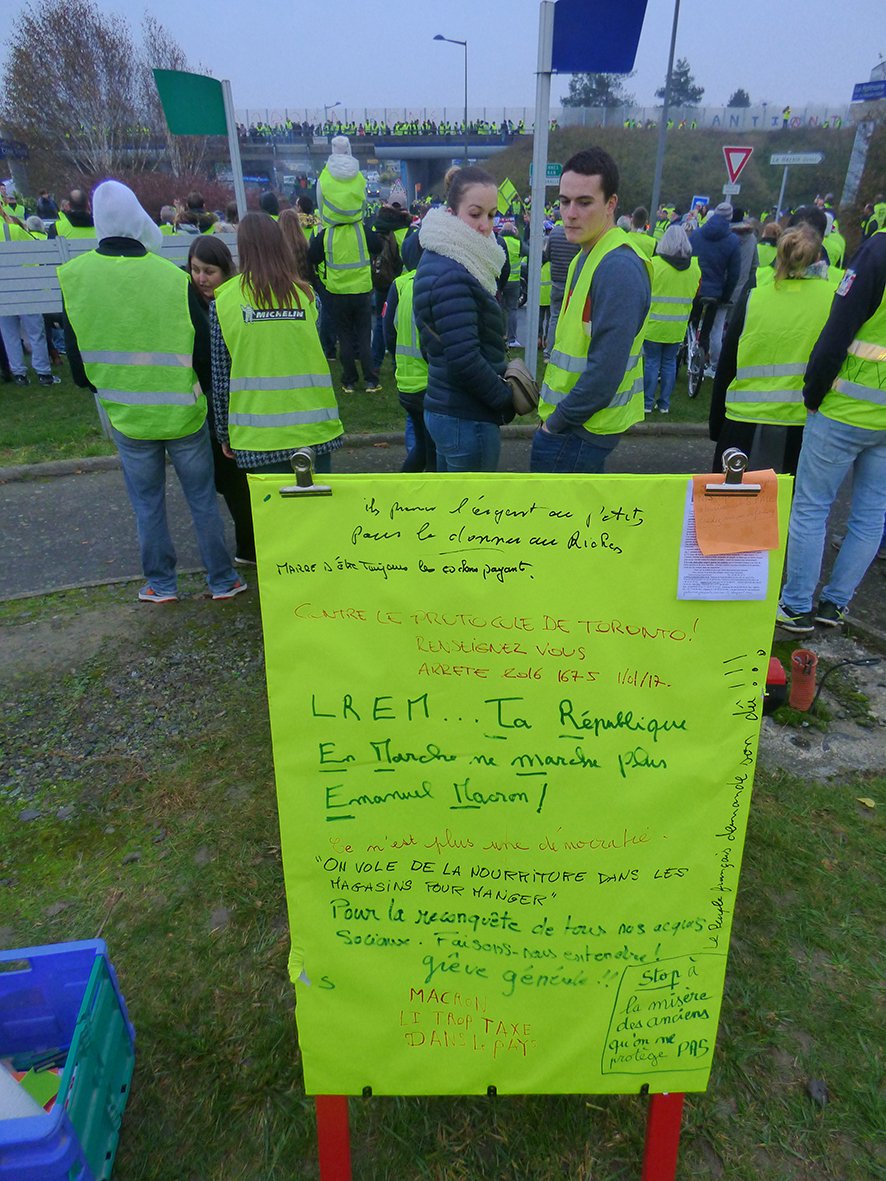 ANTI
MICHELIN
ils prenne l'argent au p'tits
pour le donner au Riches
MARRE D'être Toujours les cochons payant.
CONTRE LE PROTOCOLE DE TORONTO!
RENSEIGNEZ VOUS
ARRETE 2016 1675 1/01/17.
LREM... La République
En Marche ne marche plus
Emanuel Macron!
Ce n'est plus une démocratie.
"ON VOLE DE LA NOURRITURE DANS LES
MAGASINS POUR MANGER"
Pour la reconquête de tous nos acquis
Sociaux. Faisons-nous entendre!
grêve générale!!
S
MACRON
LI TROP TAXE
DANS Le PAYS
Stop à
la misère
des anciens
qu'on ne
protège PAS
Le Peuple français demande son dû!!!!